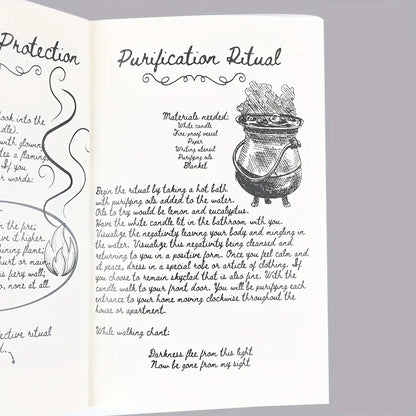 Protection
look into the
dle).
with glowing
tes a flaming
If you
r words:
n the fire;
ve it higher.
ining flame;
hurt or maim.
s fiery wall;
o, none at all.
ective ritual
d.
Purification Ritual
Materials needed:
White candle
Fire-proof vessel
Paper
Writing utensil
Purifying oils
Blanket
Begin the ritual by taking a hot bath
with purifying oils added to the water.
Oils to try would be lemon and eucalyptus.
Have the white candle lit in the bathroom with you.
Visualize the negativity leaving your body and mingling in
the water. Visualize this negativity being cleansed and
returning to you in a positive form. Once you feel calm and
at peace, dress in a special robe or article of clothing. If
you choose to remain skyclad that is also fine. With the
candle walk to your front door. You will be purifying each
entrance to your home moving clockwise throughout the
house or apartment.
While walking chant:
Darkness flee from this light
Now be gone from my sight